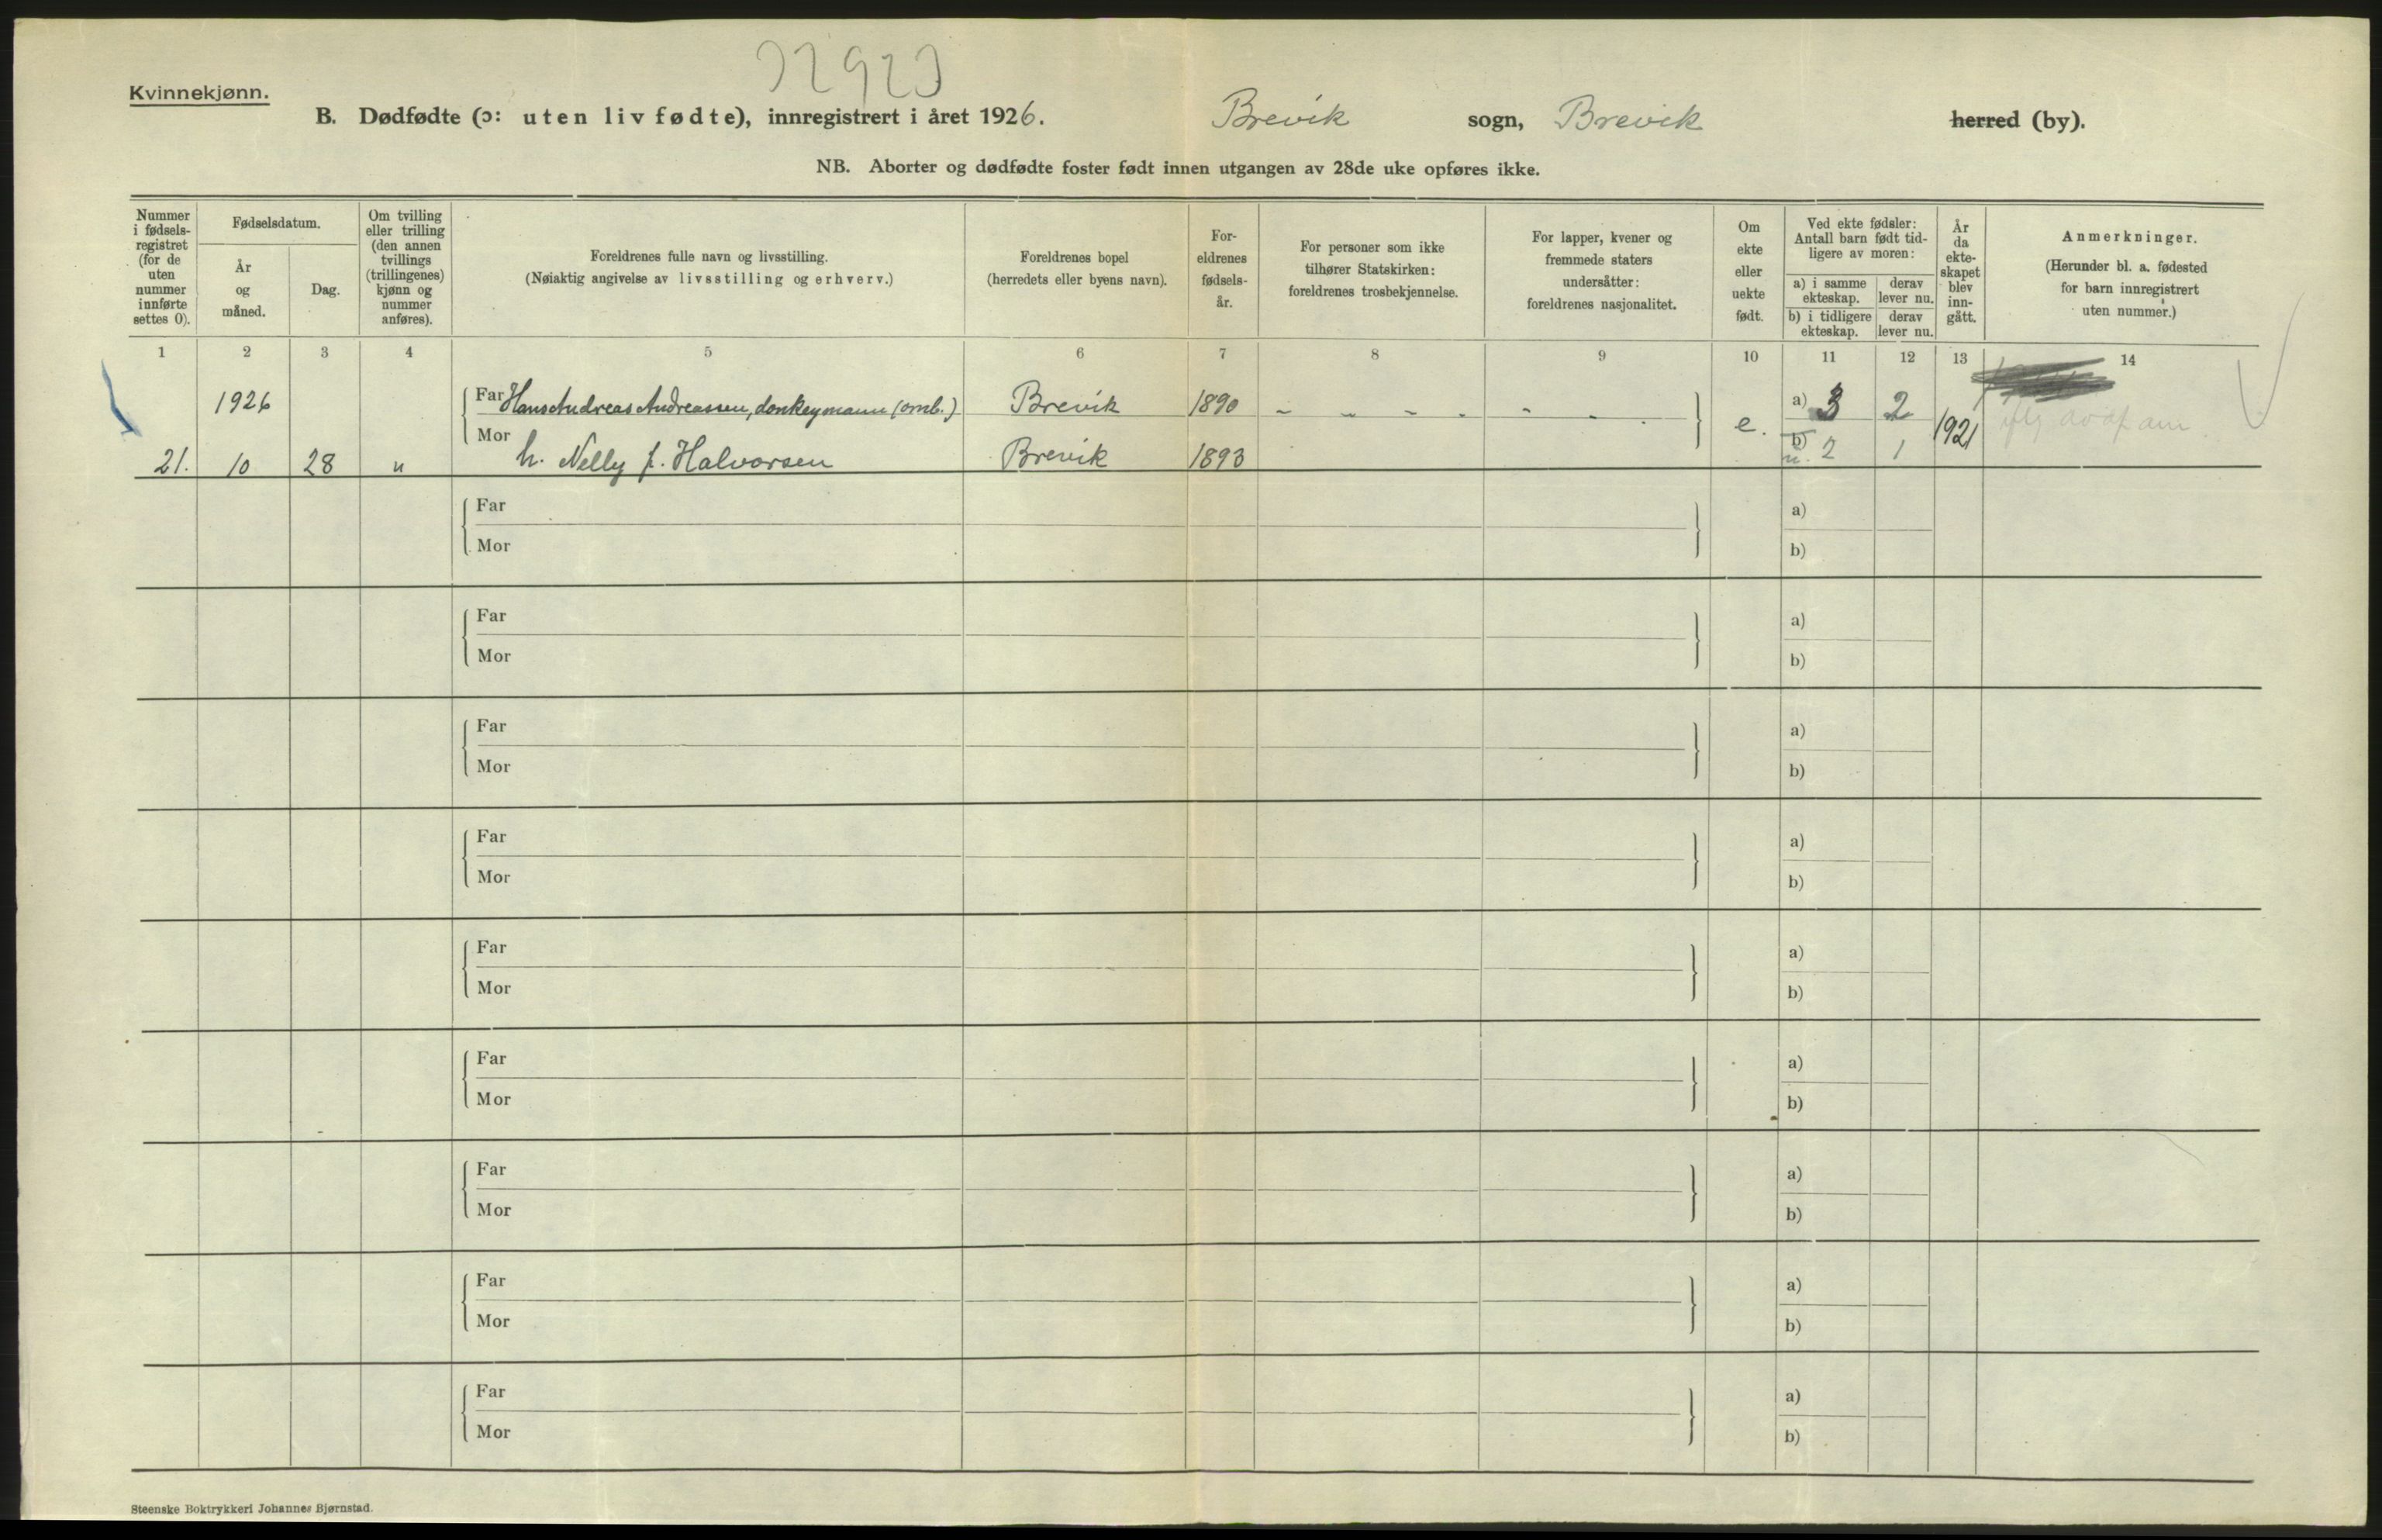 Kvinnekjønn.
B. Dødfødte (ɔ: uten liv fødte), innregistrert i året 1926. Brevik sogn, Brevik herred (by).
NB. Aborter og dødfødte foster født innen utgangen av 28de uke opføres ikke.
Nummer i fødsels-registret (for de uten nummer innførte settes 0).
Fødselsdatum.
År og måned.
Dag.
Om tvilling eller trilling (den annen tvillings (trillingenes) kjønn og nummer anføres).
Foreldrenes fulle navn og livsstilling.
(Nøiaktig angivelse av livsstilling og erhverv.)
Foreldrenes bopel
(herredets eller byens navn).
For-eldrenes fødsels-år.
For personer som ikke tilhører Statskirken: foreldrenes trosbekjennelse.
For lapper, kvener og fremmede staters undersåtter: foreldrenes nasjonalitet.
Om ekte eller uekte født.
Ved ekte fødsler: Antall barn født tid-ligere av moren:
a) i samme ekteskap.
derav lever nu.
b) i tidligere ekteskap.
derav lever nu.
År da ekte-skapet blev inn-gått.
Anmerkninger.
(Herunder bl. a. fødested for barn innregistrert uten nummer.)
1 2 3 4 5 6 7 8 9 10 11 12 13 14
1926 Far Hans Andreas Andreassen, donkeymann (omb.) Brevik 1890 - - - - - - e. a) 3 2 1921
21. 10 28 " Mor h. Nelly f. Halvorsen Brevik 1893 b) u. 2 1
Far a)
Mor b)
Far a)
Mor b)
Far a)
Mor b)
Far a)
Mor b)
Far a)
Mor b)
Far a)
Mor b)
Far a)
Mor b)
Far a)
Mor b)
Far a)
Mor b)
Steenske Boktrykkeri Johannes Bjørnstad.